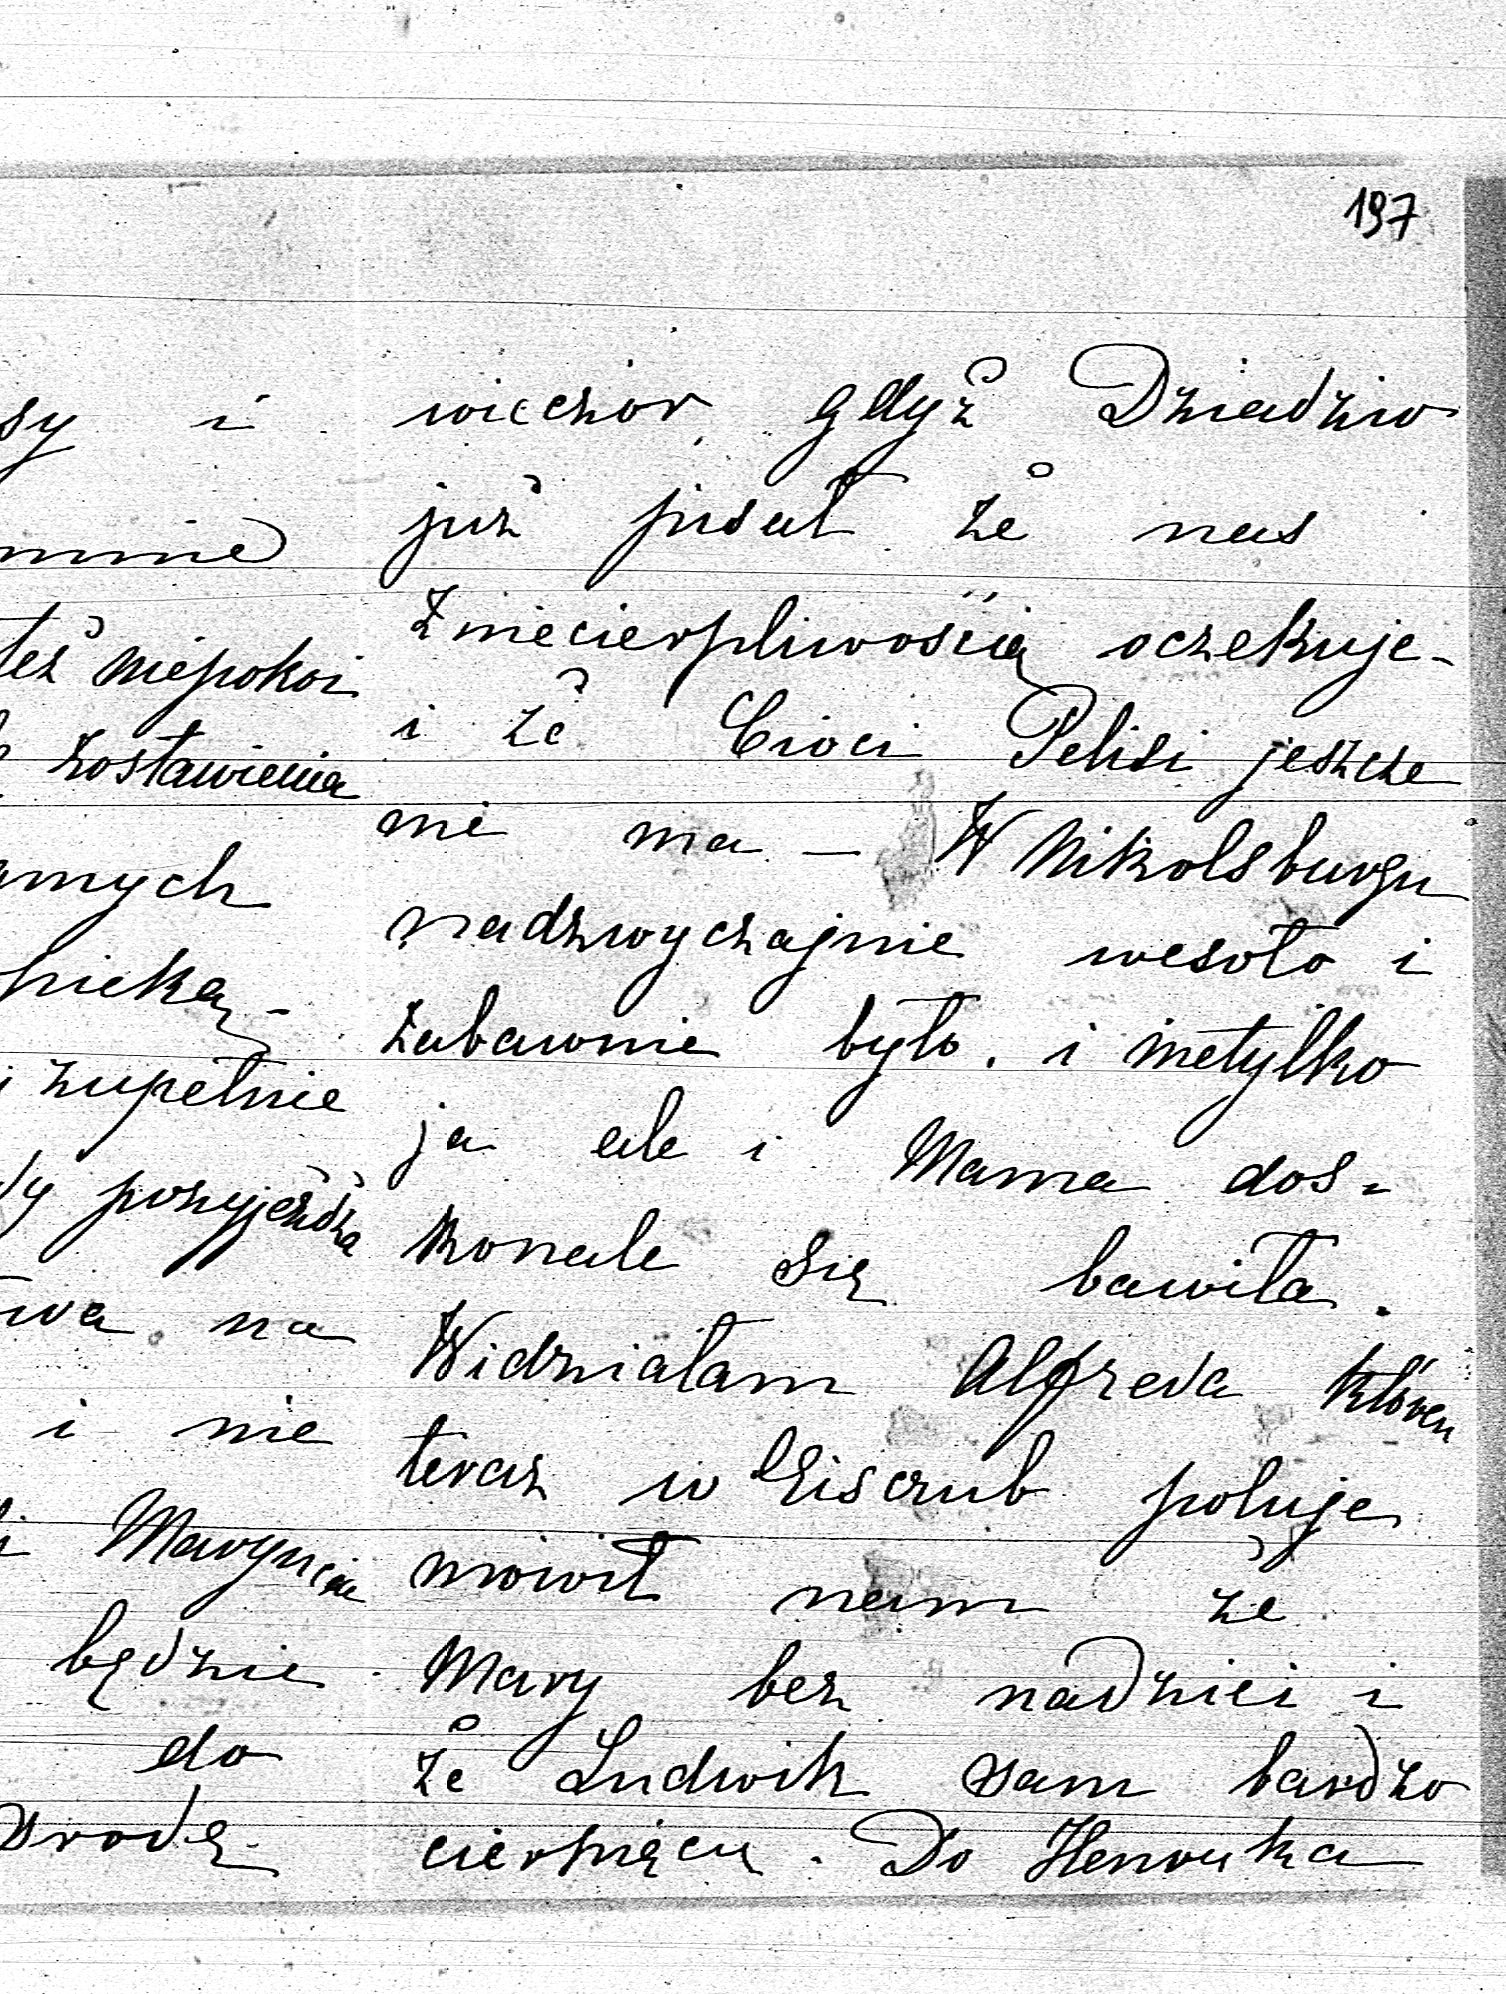 197
sy i
mnie
też niepokoi
zostawienia
amych
pieką-
i zupełnie
dy przyjeżdża
wa na
i nie
Marynia
będzie
do
środę
wieczór, gdyż Dziadzio
już pisał że nas
z niecierpliwością oczekuje-
i że Cioci Pelisi jeszcze
nie ma — W Nikolsburgu
nadzwyczajnie wesoło i
zabawnie było. i nietylko
ja ale i Mama dos-
konale się bawiła.
Widziałam Alfreda który
teraz w Eisgrub poluje
mówił nam że
Mary bez nadziei i
że Ludwik sam bardzo
cierpiący. Do Henryka